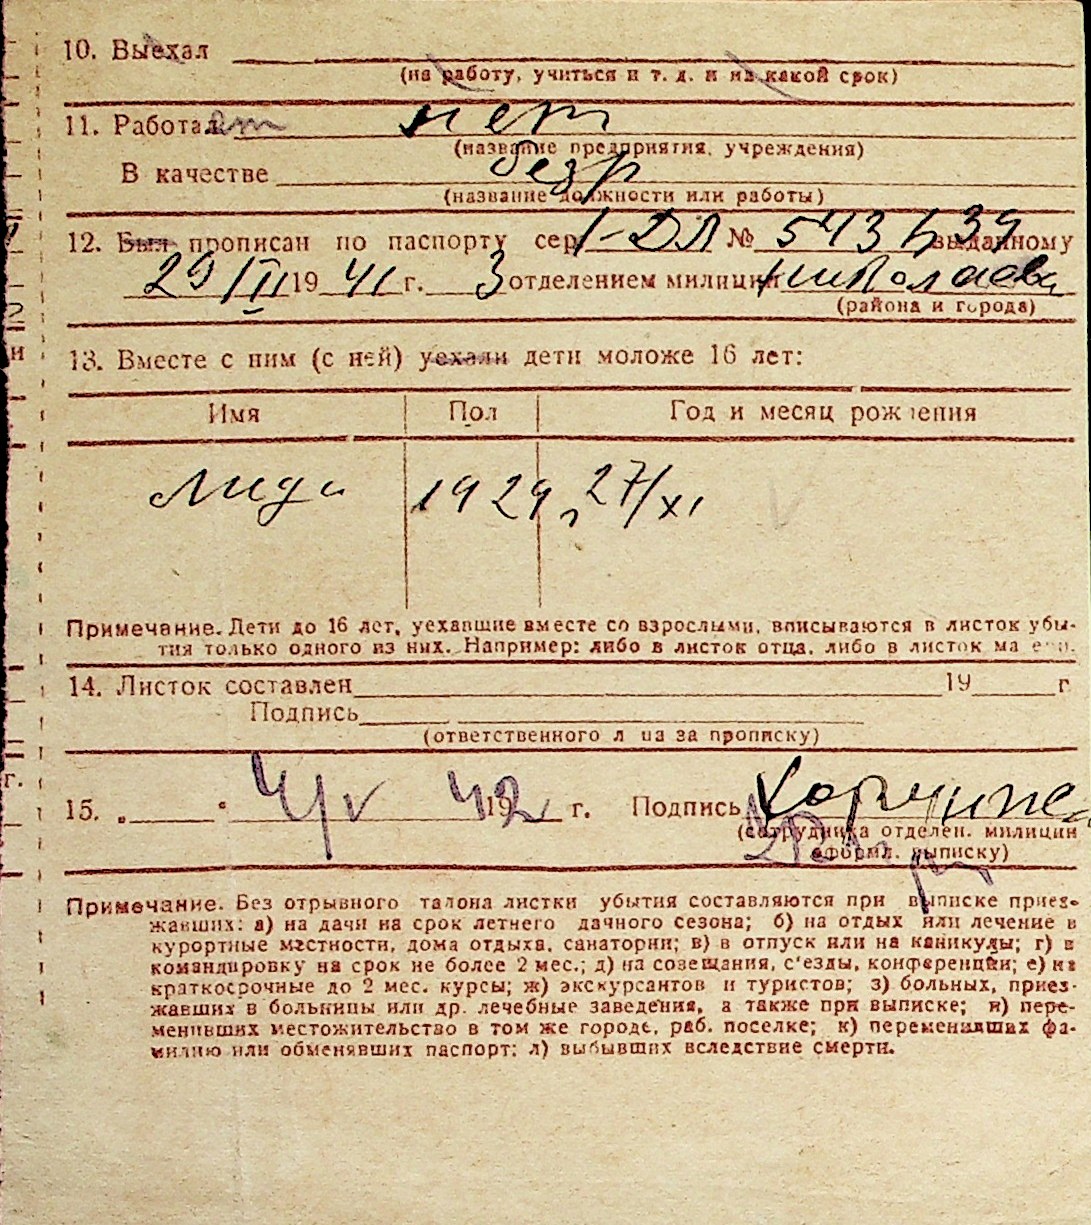 10. Выехал
(на работу, учиться и т. д. и на какой срок)
11. Работает нет
(название предприятия, учреждения)
В качестве безр
(название должности или работы)
12. Был прописан по паспорту сер I-ДЛ № 543639 выданному
29/II 1941 г. 3 отделением милиции г Николаева
(района и города)
13. Вместе с ним (с ней) уехали дети моложе 16 лет:
Имя Пол Год и месяц рождения
Лида 1929 г 27/XI
Примечание. Дети до 16 лет, уехавшие вместе со взрослыми, вписываются в листок убы-
тия только одного из них. Например: либо в листок отца, либо в листок матери.
14. Листок составлен 19 г
Подпись
(ответственного лица за прописку)
15. „ " 4/V 1942 г. Подпись
(сотрудника отделен. милиции
оформл. выписку)
Примечание. Без отрывного талона листки убытия составляются при выписке приез-
жавших: а) на дачи на срок летнего дачного сезона; б) на отдых или лечение в
курортные местности, дома отдыха, санатории; в) в отпуск или на каникулы; г) в
командировку на срок не более 2 мес.; д) на созещания, с'езды, конференции; е) на
краткосрочные до 2 мес. курсы; ж) экскурсантов и туристов; з) больных, приез-
жавших в больницы или др. лечебные заведения, а также при выписке; и) пере-
менивших местожительство в том же городе, раб. поселке; к) переменивших фа-
милию или обменявших паспорт; л) выбывших вследствие смерти.